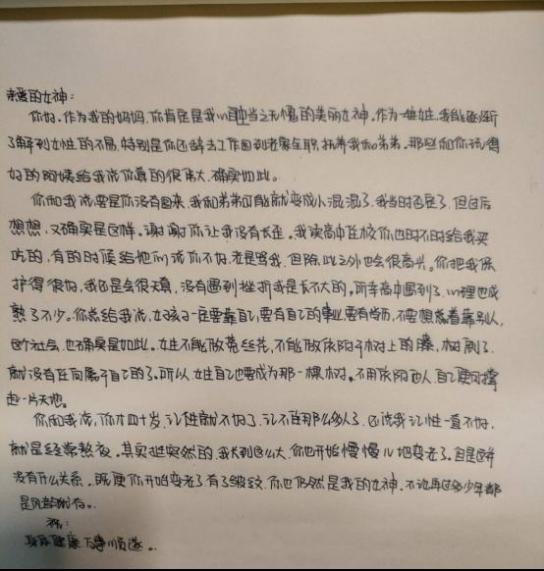 亲爱的女神:
你好,作为我的妈妈,你肯定是我心目中当之无愧的美丽女神。作为一姓女生,我能逐渐
了解到女性的不易,特别是你还辞去工作回到老家全职抚养我和弟弟。那些和你玩得
好的阿姨给我说你真的很伟大,确实如此。
你和我说,要是你没有回来,我和弟弟可能就变成小混混了,我当时否定了,但过后
想想,又确实是这样。谢谢你让我没有长歪。我读高中住校你也时不时给我买
吃的,有的时候给他们说你不好,老是骂我,但除此之外也会很高兴。你把我保
护得很好,我还是会很天真,没有遇到挫折我是长不大的。所幸高中遇到了,心理也成
熟了不少。你总给我说,女孩子一定要靠自己,要有自己的事业,要有学历,不要想着靠别人,
这个社会也确实是如此。女生不能做菟丝花,不能做依附于树上的藤,树倒了,
就没有任何属于自己的了。所以,女生自己也要成为那一棵树。不用依附他人,自己便可撑
起一片天地。
你和我说,你才四十岁,记性就不好了,记不住那么多人了,还说我记性一直不好,
就是经常熬夜。其实挺突然的,我长到这么大,你也开始慢慢儿地变老了。但是这并
没有什么关系。既便你开始变老了,有了皱纹,你也仍然是我的女神,不论再过多少年都
是风韵犹存。
祝:
身体健康 万事顺遂。